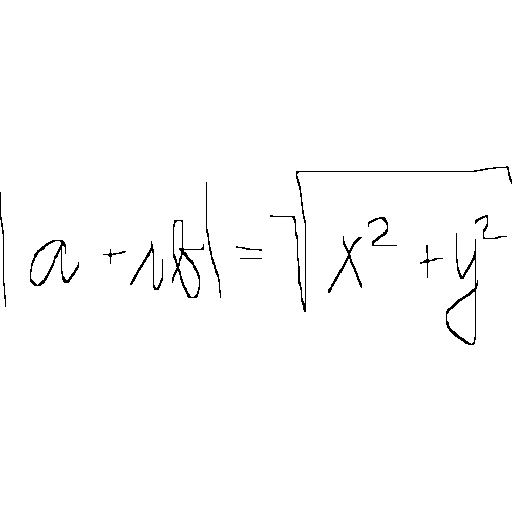 |a + ib| = √(x² + y²)